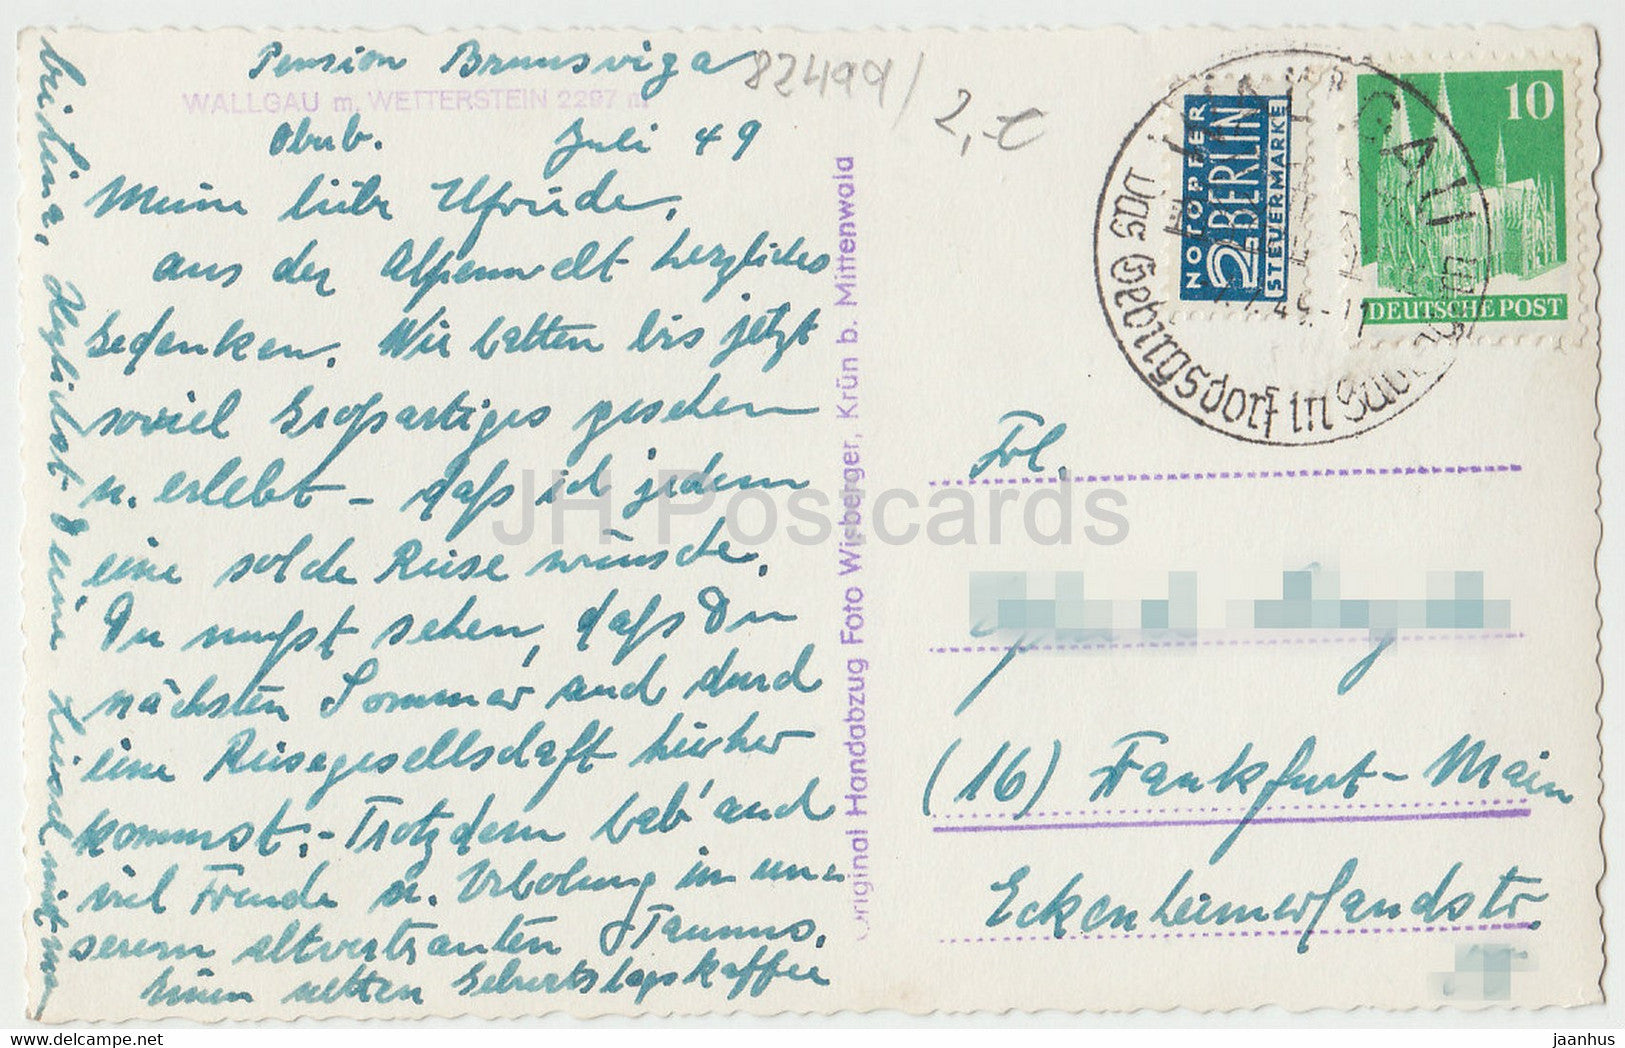 Pension Brunsviga
WALLGAU m. WETTERSTEIN 2297 m
Obub. Juli 49
82499/ 2,-€
Meine liebe Elfriede,
aus der Alpenwelt herzliches
Gedenken. Wir hatten bis jetzt
soviel Großartiges gesehen
u. erlebt – daß ich jedem
eine solche Reise wünsche.
Du mußt sehen, daß Du
nächsten Sommer auch durch
eine Reisegesellschaft hierher
kommst. – Trotzdem hab' auch
viel Freude u. Erholung in un-
serem altvertrauten Taunus.
Einen netten Geburtstagskaffee
Herzlichst Deine
Original Handabzug Foto Wisberger, Krün b. Mittenwald
NOTOPFER
2 BERLIN
STEUERMARKE
10
DEUTSCHE POST
WALLGAU
Das Gebirgsdorf in
Frl.
(16) Frankfurt-Main
Eckenheimerlandstr.
JH Postcards
www.delcampe.net
jaanhus